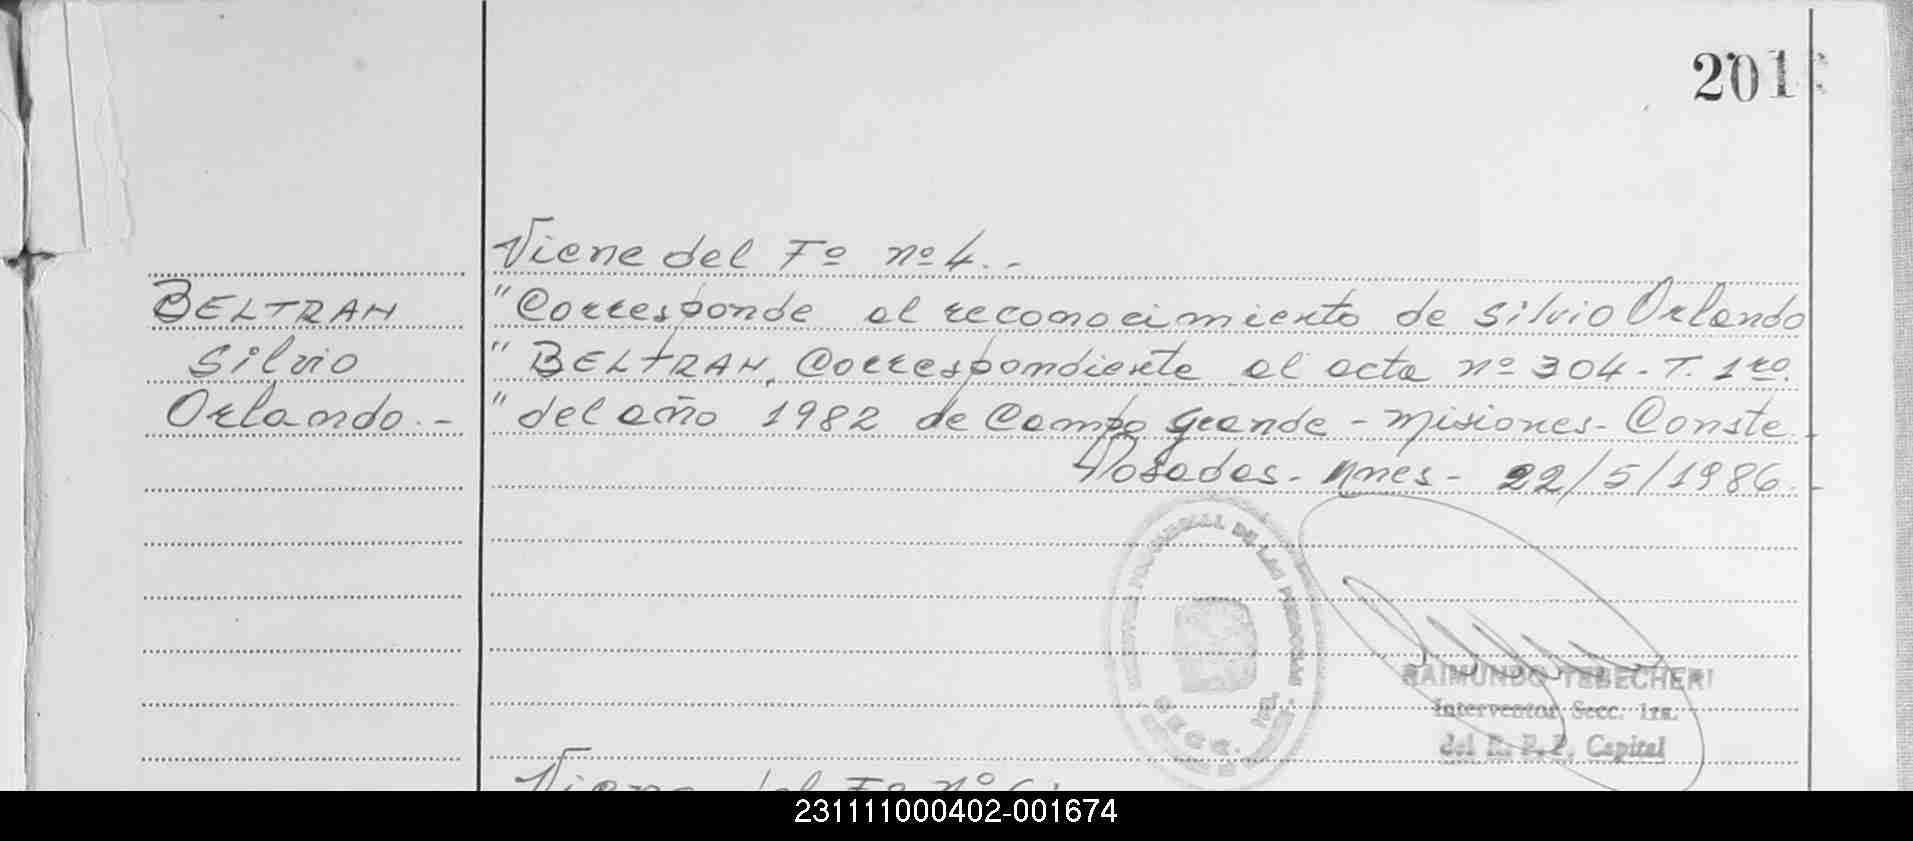 201
Viene del Fº nº 4.-
BELTRAN
Silvio
Orlando.-
"Corresponde al reconocimiento de Silvio Orlando
"BELTRAN, Correspondiente al acta nº 304-T. 1ro.
"del año 1982 de Campo Grande - Misiones - Conste.-
Posadas - Mnes - 22/5/1986.-
PROVINCIAL DE LAS PERSONAS
SECC.
RAIMUNDO TEBECHERI
Interventor Secc. 1ra.
del R. P. P. Capital
Viene del Fº nº
231111000402-001674